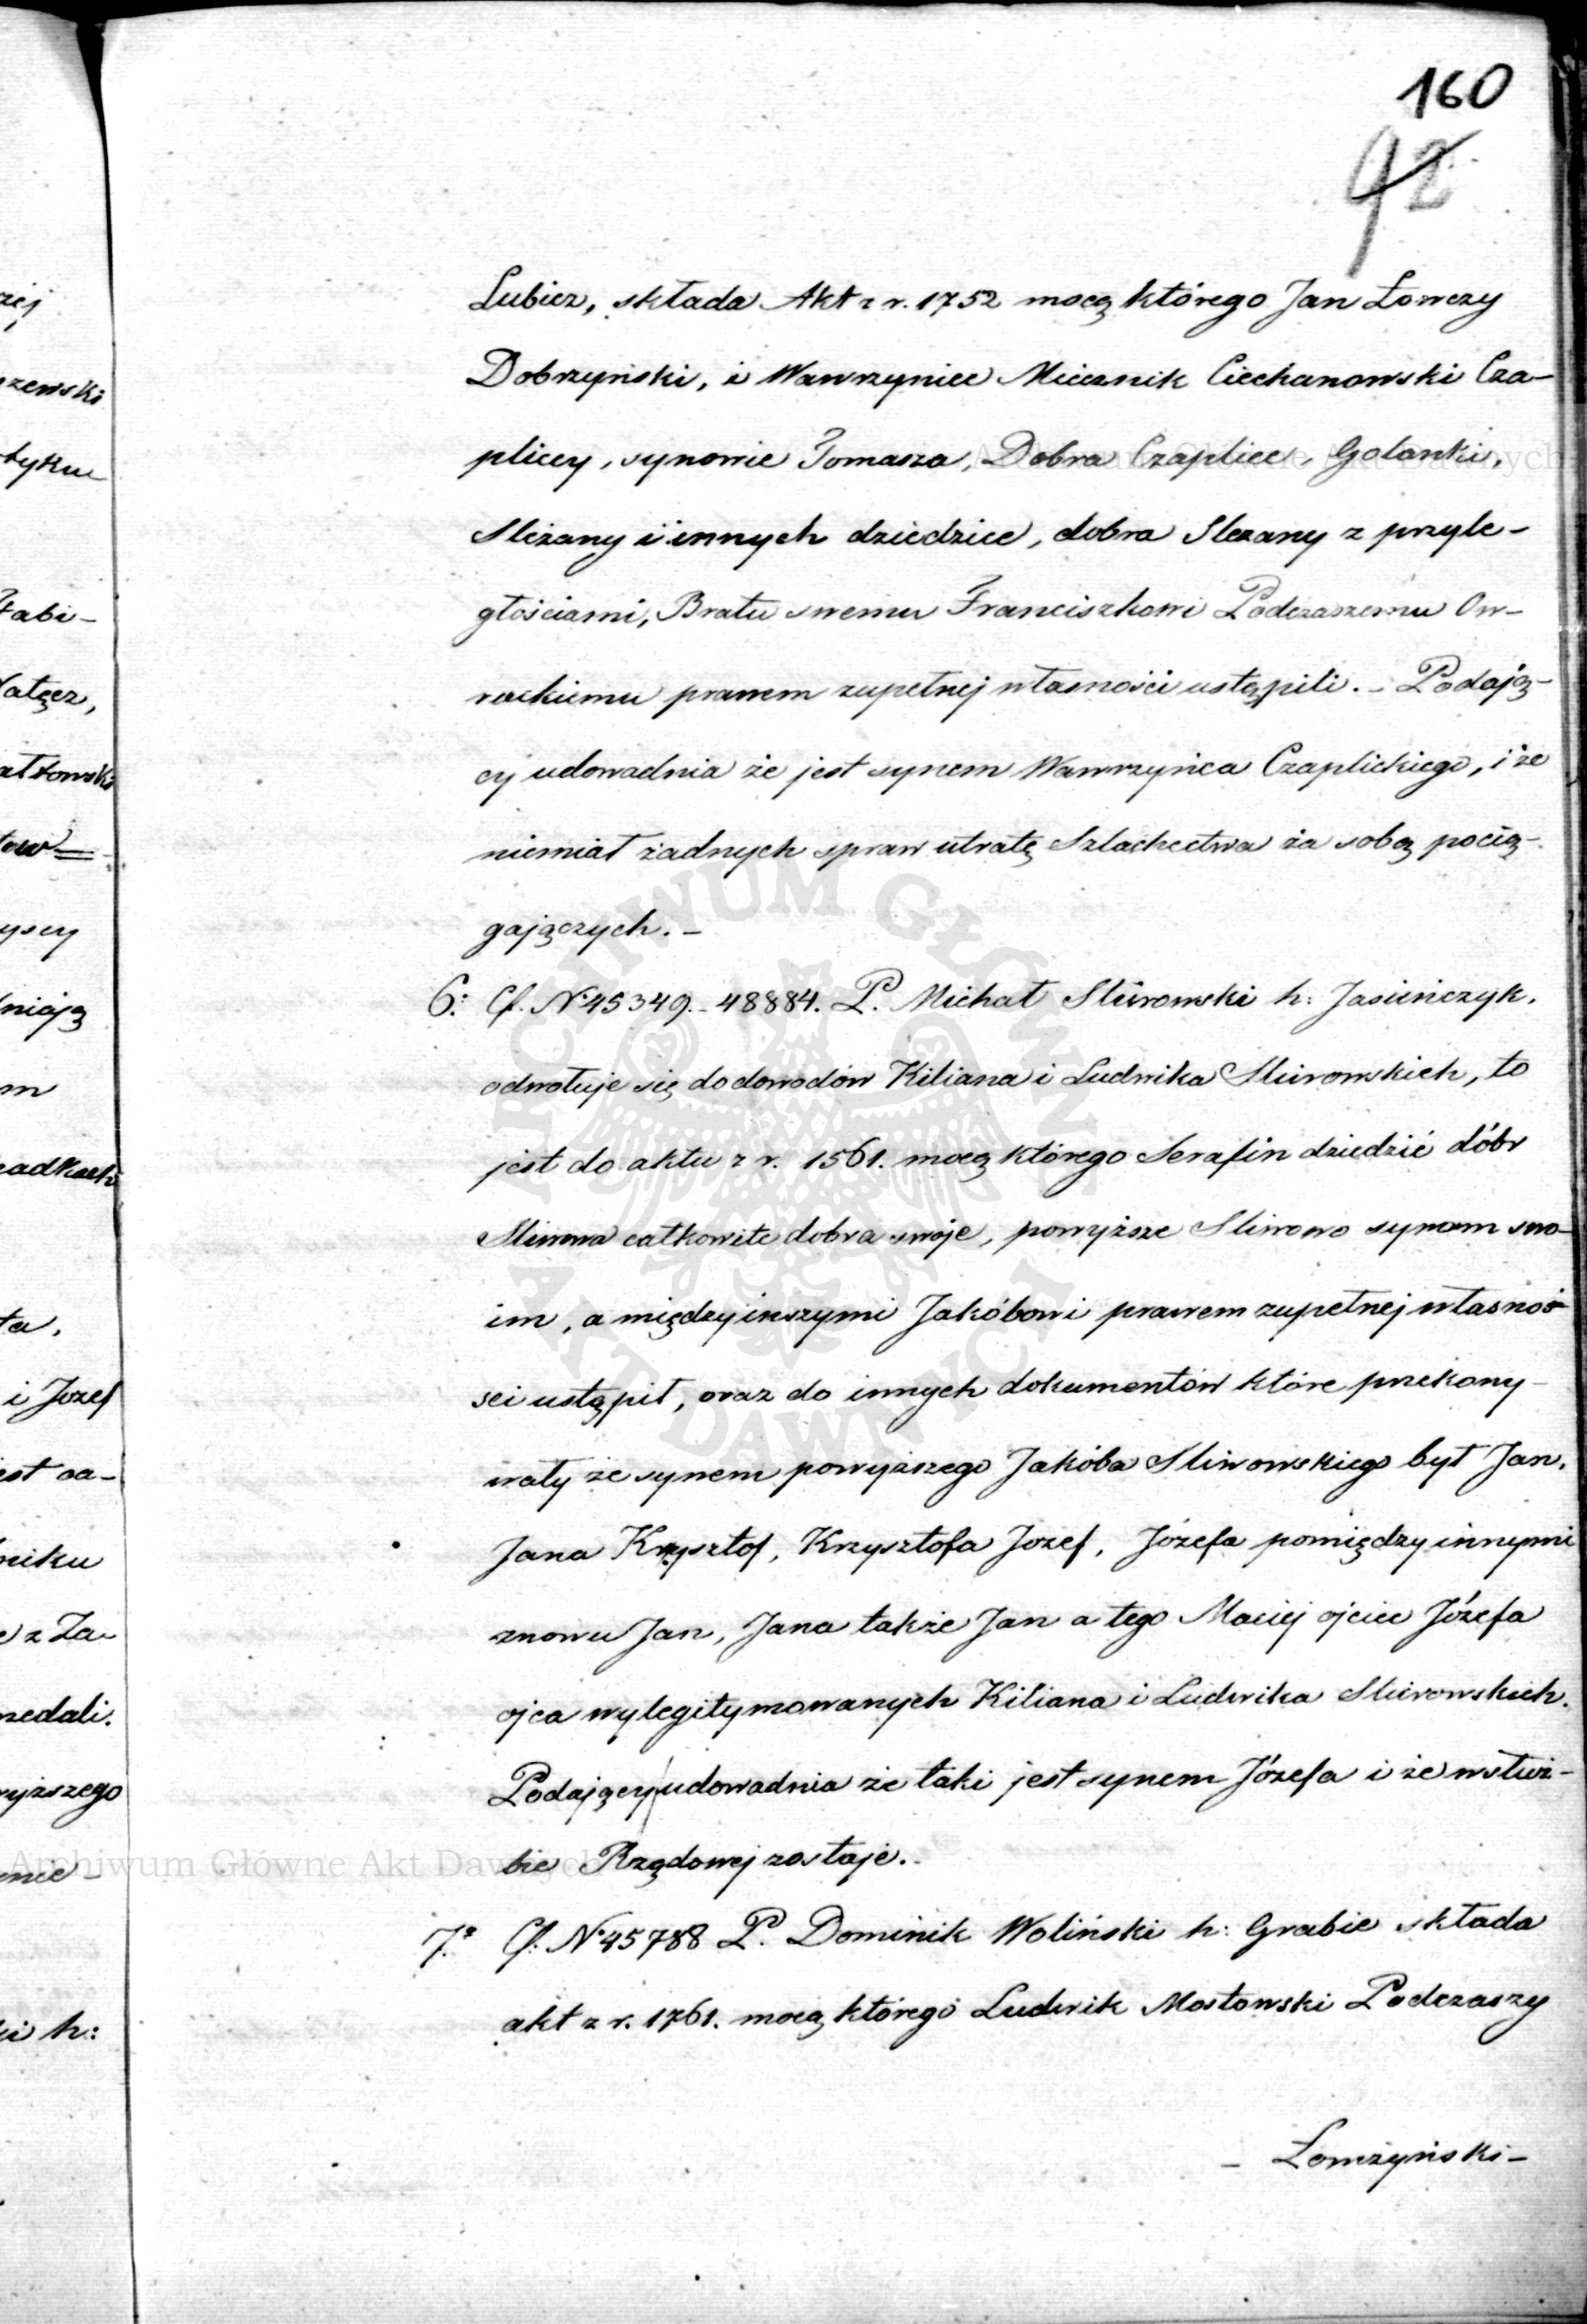 160
92
Lubicz, składa Akt z r. 1752 mocą którego Jan Łowczy
Dobrzyński, i Wawrzyniec Miecznik Ciechanowski Cza-
plicey, synowie Tomasza, Dobra Czaplice, Golanki,
Slężany i innych dziedzice, dobra Slezany z przyle-
głościami, Bratu swemu Franciszkowi Podczaszemu Ow-
rockiemu prawem zupełnej własności ustąpili. - Podają-
cy udowadnia że jest synem Wawrzyńca Czaplickiego, i że
niemiał żadnych spraw utratę Szlachectwa za sobą pocią-
gajączych. -
6: Cf. N. 45349. - 48884. P. Michał Sliwowski h: Jasieńczyk.
odwołuje się do dowodów Kiliana i Ludwika Sliwowskich, to
jest do aktu z r. 1561. mocą którego Serafin dziedzić dóbr
Sliwowa całkowite dobra swoje, powyższe Sliwowo synom swo-
im, a między inszymi Jakóbowi prawem zupełnej własnoś-
sci ustąpił, oraz do innych dokumentów które przekony-
wały że synem powyższego Jakóba Sliwowskiego był Jan.
Jana Krzysztof, Krzysztofa Jozef, Józefa pomiędzy innymi
znowu Jan, Jana także Jan a tego Maciej ojciec Józefa
ojca wylegitymowanych Kiliana i Ludwika Sliwowskich.
Podający udowadnia że taki jest synem Józefa i że w służ-
bie Rządowej zostaje. -
7. Cf. N. 45788 P. Dominik Woliński h: Grabie składa
akt z r. 1761. mocą którego Ludwik Mostowski Podczaszy
- Łomżyński -
zej
zewski
tyku
Fabi-
Nałęcz,
ałtowski
tow=
ysey
niają
m
adkach
ta.
i Jozef
est oa-
niku
z Za-
nedali.
wyższego
nie-
ki h:
Archiwum Główne Akt Dawnych
ARCHIWUM GŁÓWNE
AKT DAWNYCH